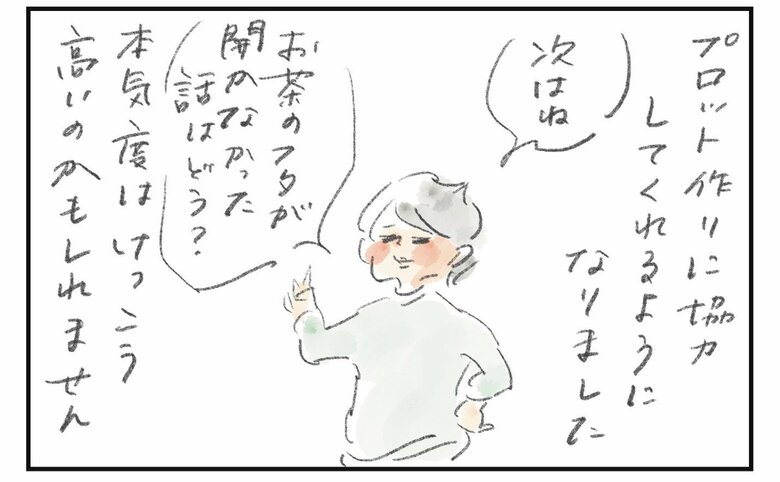 プロット作りに協力
してくれるように
なりました
次はね
お茶のフタが
開かなかった
話はどう?
本気度はけっこう
高いのかもしれません